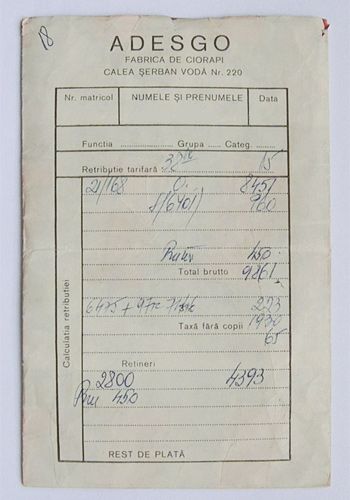 18
ADESGO
FABRICA DE CIORAPI
CALEA ȘERBAN VODĂ Nr. 220
Nr. matricol NUMELE ȘI PRENUMELE Data
Functia ........ Grupa ..... Categ. .....
Retributie tarifară 15
Calculatia retributiei
21/168 0. 8451
960
450
Total brutto 9861
6475 + 293
Taxă fără copii 1930
65
Retineri
2800 4393
450
REST DE PLATĂ